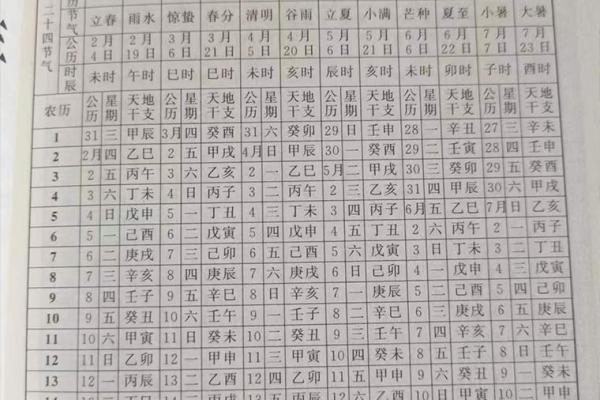 历节气 立春 雨水 惊蛰 春分 清明 谷雨 立夏 小满 芒种 夏至 小暑 大暑
二十四节气
公历 2月4日 2月19日 3月6日 3月21日 4月5日 4月20日 5月6日 5月21日 6月6日 6月22日 7月7日 7月23日
时辰 未时 午时 巳时 巳时 未时 亥时 辰时 亥时 午时 卯时 子时 酉时
农历 公历 星期 天地干支 公历 星期 天地干支 公历 星期 天地干支 公历 星期 天地干支 公历 星期 天地干支 公历 星期 天地干支
1 31 三 甲辰 3月 四 癸酉 31 六 癸卯 29 日 壬申 28 一 辛丑 27 三 辛未
2 2月 四 乙巳 2 五 甲戌 4月 日 甲辰 30 一 癸酉 29 二 壬寅 28 四 壬申
3 2 五 丙午 3 六 乙亥 2 一 乙巳 5月 二 甲戌 30 三 癸卯 29 五 癸酉
4 3 六 丁未 4 日 丙子 3 二 丙午 2 三 乙亥 31 四 甲辰 30 六 甲戌
5 4 日 戊申 5 一 丁丑 4 三 丁未 3 四 丙子 6月 五 乙巳 7月 日 乙亥
6 5 一 己酉 6 二 戊寅 5 四 戊申 4 五 丁丑 2 六 丙午 2 一 丙子
7 6 二 庚戌 7 三 己卯 6 五 己酉 5 六 戊寅 3 日 丁未 3 二 丁丑
8 7 三 辛亥 8 四 庚辰 7 六 庚戌 6 日 己卯 4 一 戊申 4 三 戊寅
9 8 四 壬子 9 五 辛巳 8 日 辛亥 7 一 庚辰 5 二 己酉 5 四 己卯
10 9 五 癸丑 10 六 壬午 9 一 壬子 8 二 辛巳 6 三 庚戌 6 五 庚辰
11 10 六 甲寅 11 日 癸未 10 二 癸丑 9 三 壬午 7 四 辛亥 7 六 辛巳
12 11 日 乙卯 12 一 甲申 11 三 甲寅 10 四 癸未 8 五 壬子 8 日 壬午
13 12 一 丙辰 13 二 乙酉 12 四 乙卯 11 五 甲申 9 六 癸丑 9 一 癸未